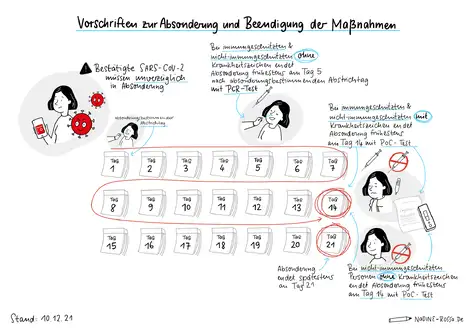 Vorschriften zur Absonderung und Beendigung der Maßnahmen
Bestätigte SARS-CoV-2
müssen unverzüglich
in Absonderung
absonderungsbestimmender
Abstrichtag
Bei immungeschützten &
nicht-immungeschützten ohne
Krankheitszeichen endet
Absonderung frühestens am Tag 5
nach absonderungsbestimmenden Abstrichtag
mit PCR-Test
Bei immungeschützten &
nicht-immungeschützten mit
Krankheitszeichen endet
Absonderung frühestens
am Tag 14 mit PoC-Test
TAG 1
TAG 2
TAG 3
TAG 4
TAG 5
TAG 6
TAG 7
TAG 8
TAG 9
TAG 10
TAG 11
TAG 12
TAG 13
TAG 14
TAG 15
TAG 16
TAG 17
TAG 18
TAG 19
TAG 20
TAG 21
Absonderung
endet spätestens
an Tag 21
Bei nicht-immungeschützten
Personen ohne Krankheitszeichen
endet Absonderung frühestens
am Tag 14 mit PoC-Test
Stand: 10.12.21
NADINE-ROSSA.DE